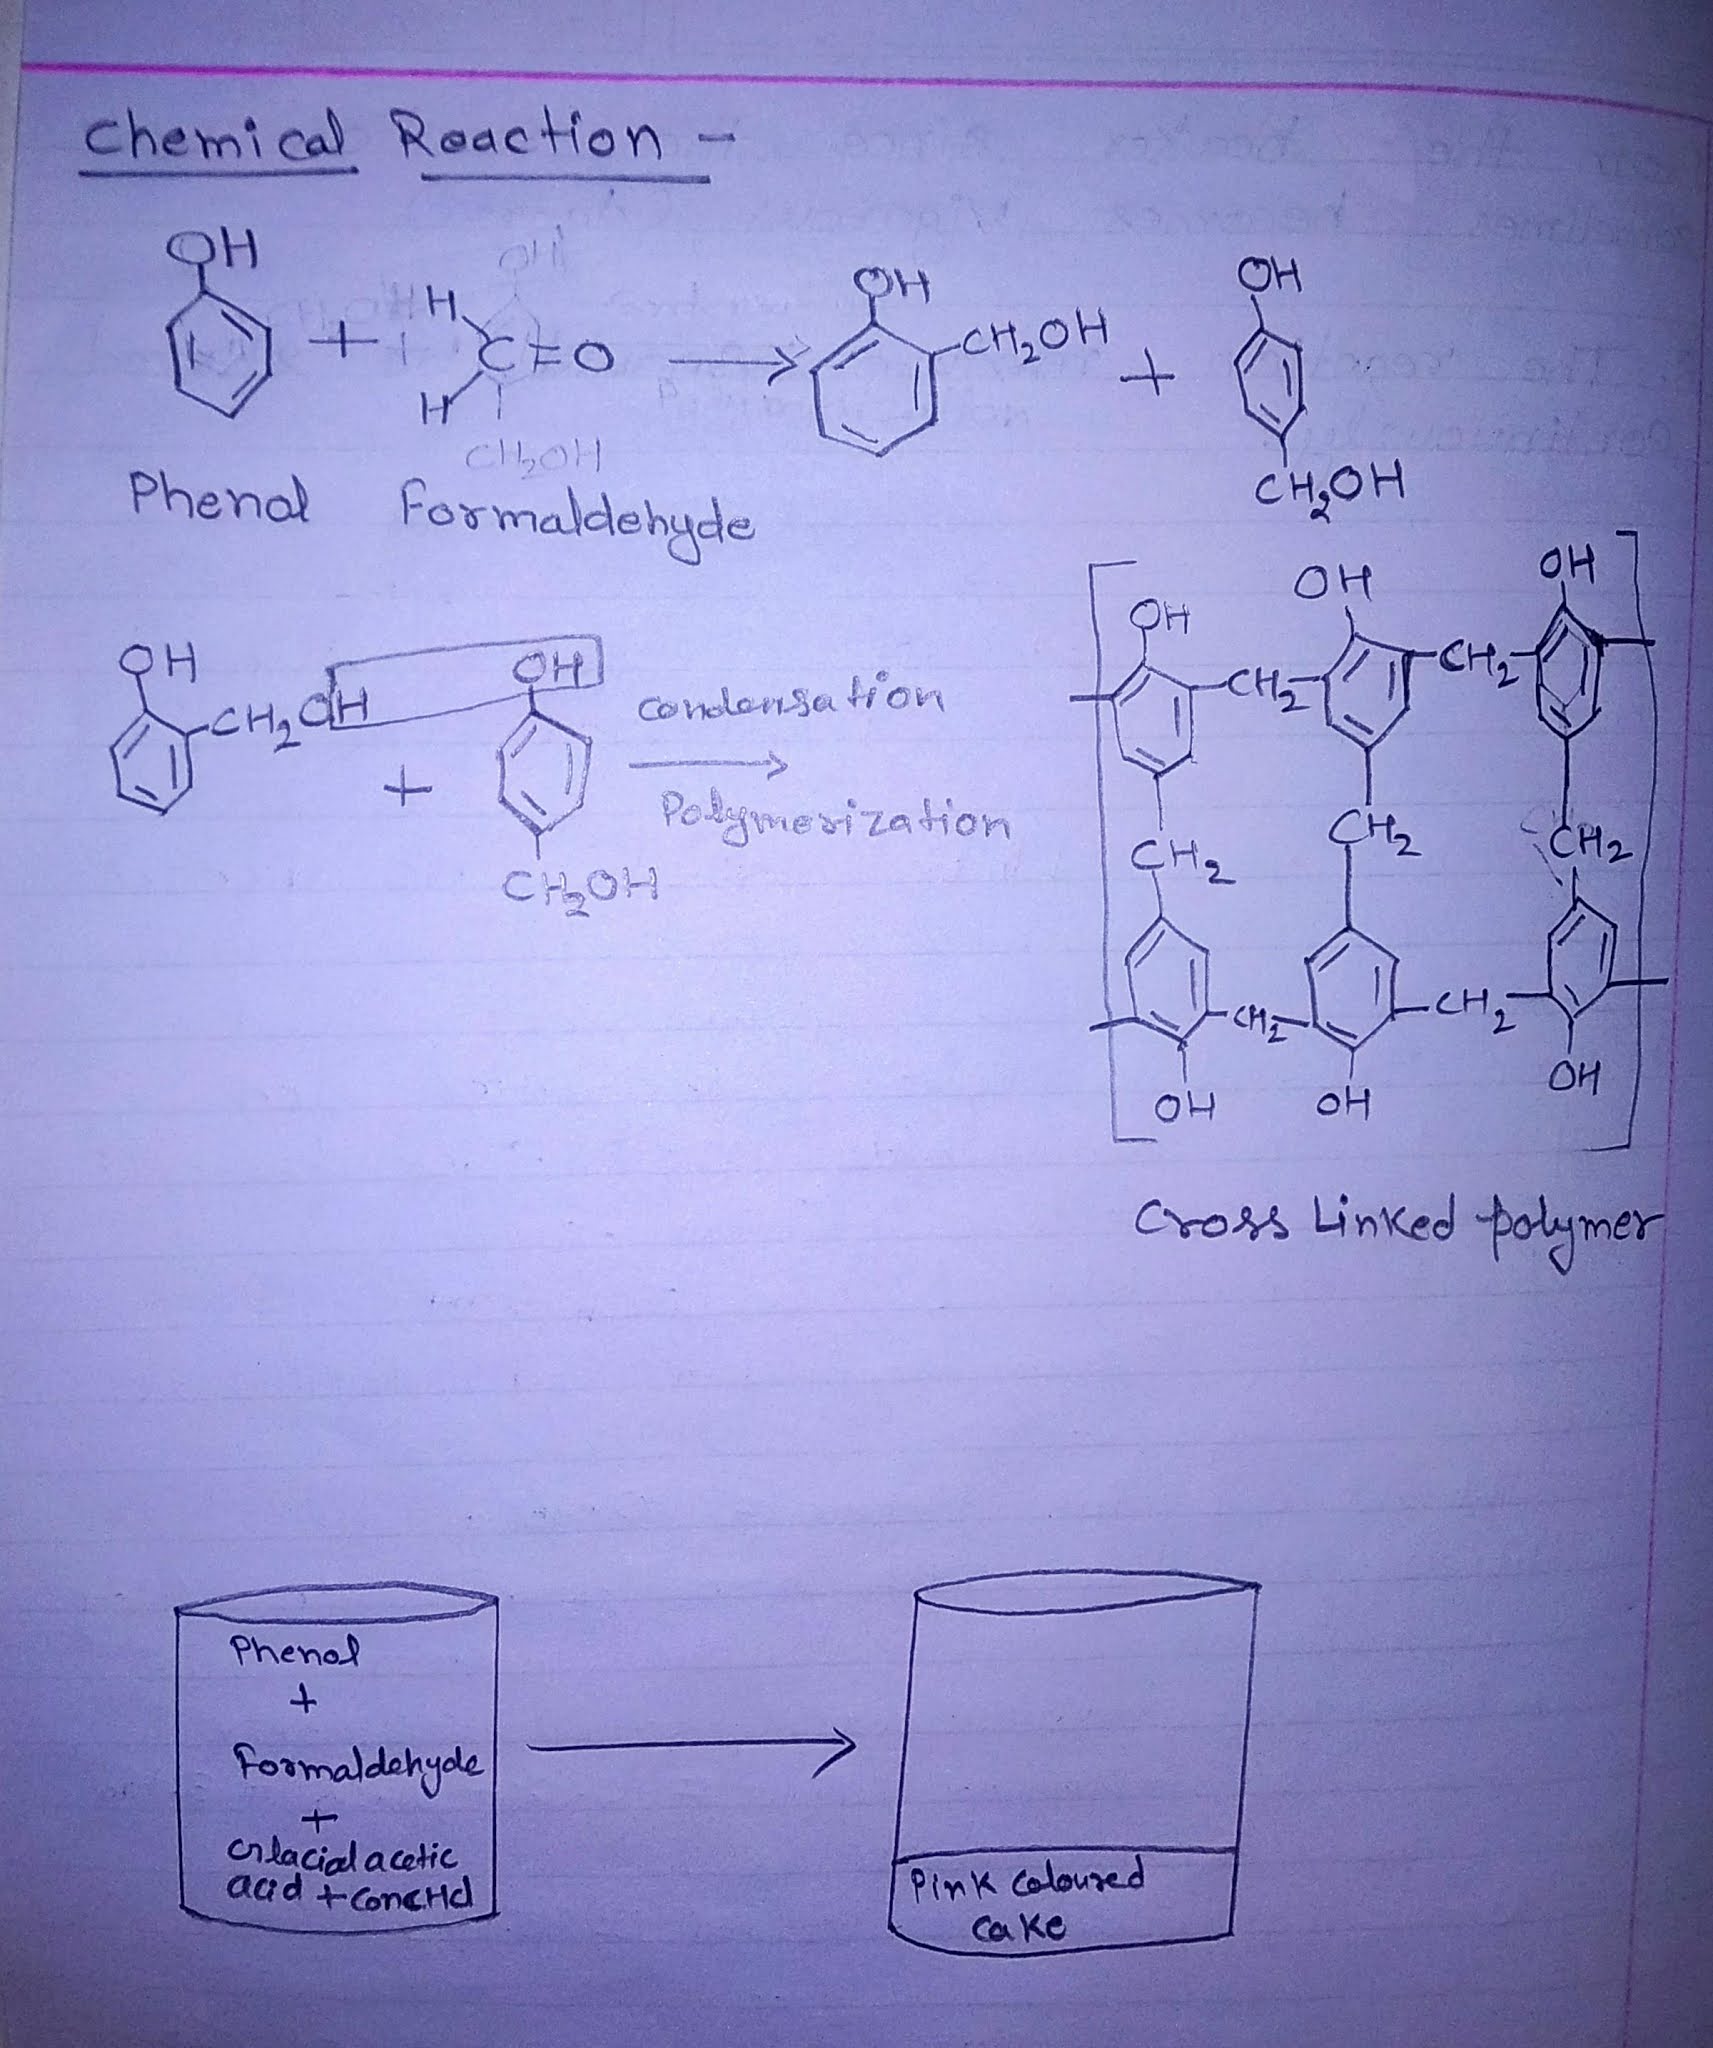 Chemical Reaction -
OH
H
C=O
H
+
→
OH
CH2OH
+
OH
CH2OH
CH2OH
Phenol Formaldehyde
OH
CH2OH
+
OH
CH2OH
Condensation
→
Polymerization
OH OH OH
CH2 CH2
CH2 CH2 CH2
CH2 CH2
OH OH OH
Cross Linked polymer
Phenol
+
Formaldehyde
+
Glacial acetic
acid + conc HCl
→
Pink coloured
cake